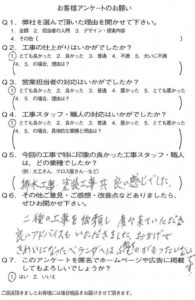 お客様アンケートのお願い
Q1. 弊社を選んで頂いた理由を聞かせて下さい。
1. 金額 2. 担当者の人柄 3. デザイン・提案内容
4. その他（
Q2. 工事の仕上がりはいかがでしたか？
1 とても良かった 2. 良かった 3. 普通 4. 不満 5. 大いに不満
4、5 の場合、理由は？
Q3. 営業担当者の対応はいかがでしたか？
1 とても良かった 2. 良かった 3. 普通 4. 悪い 5. とても悪い
4、5 の場合、理由は？
Q4. 工事スタッフ・職人の対応はいかがでしたか？
1 とても良かった 2. 良かった 3. 普通 4. 悪い 5. とても悪い
4、5 の場合、理由は？
Q5. 今回の工事で特に印象の良かった工事スタッフ・職人
は、どの業種でしたか？
（例：大工さん、クロス屋さんなど）
工事、塗装工事共 良い感じでした。
Q6. その他ご意見・ご感想・改善点などありましたら、
ぜひお聞かせ下さい。
二種の工事を依頼し
良いアドバイスもいただきました おかげで
きれいになったベランダへ
Q7. このアンケートを匿名でホームページや広告に掲載
してもよろしいでしょうか？
1 はい 2. いいえ
ご返送頂きましたお客様には毎日粗品をお届けさせて頂きます。